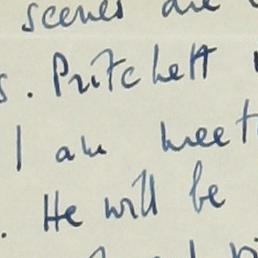 scenes are
s. Pritchett
I am meet
. He will be